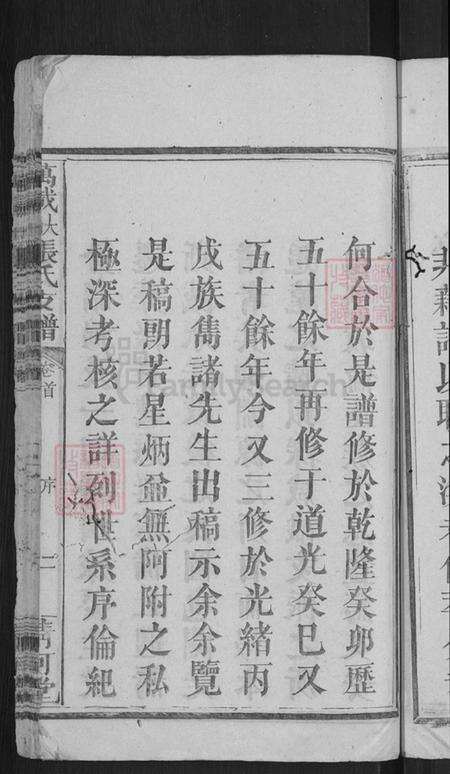 何合於是譜修於乾隆癸卯歷
五十餘年再修于道光癸巳又
五十餘年今又三修於光緒丙
戌族雋諸先生出稿示余余覽
是稿朙若星炳並無阿附之私
極深考核之詳列世系序倫紀
張氏支譜
卷首
序
FamilySearch